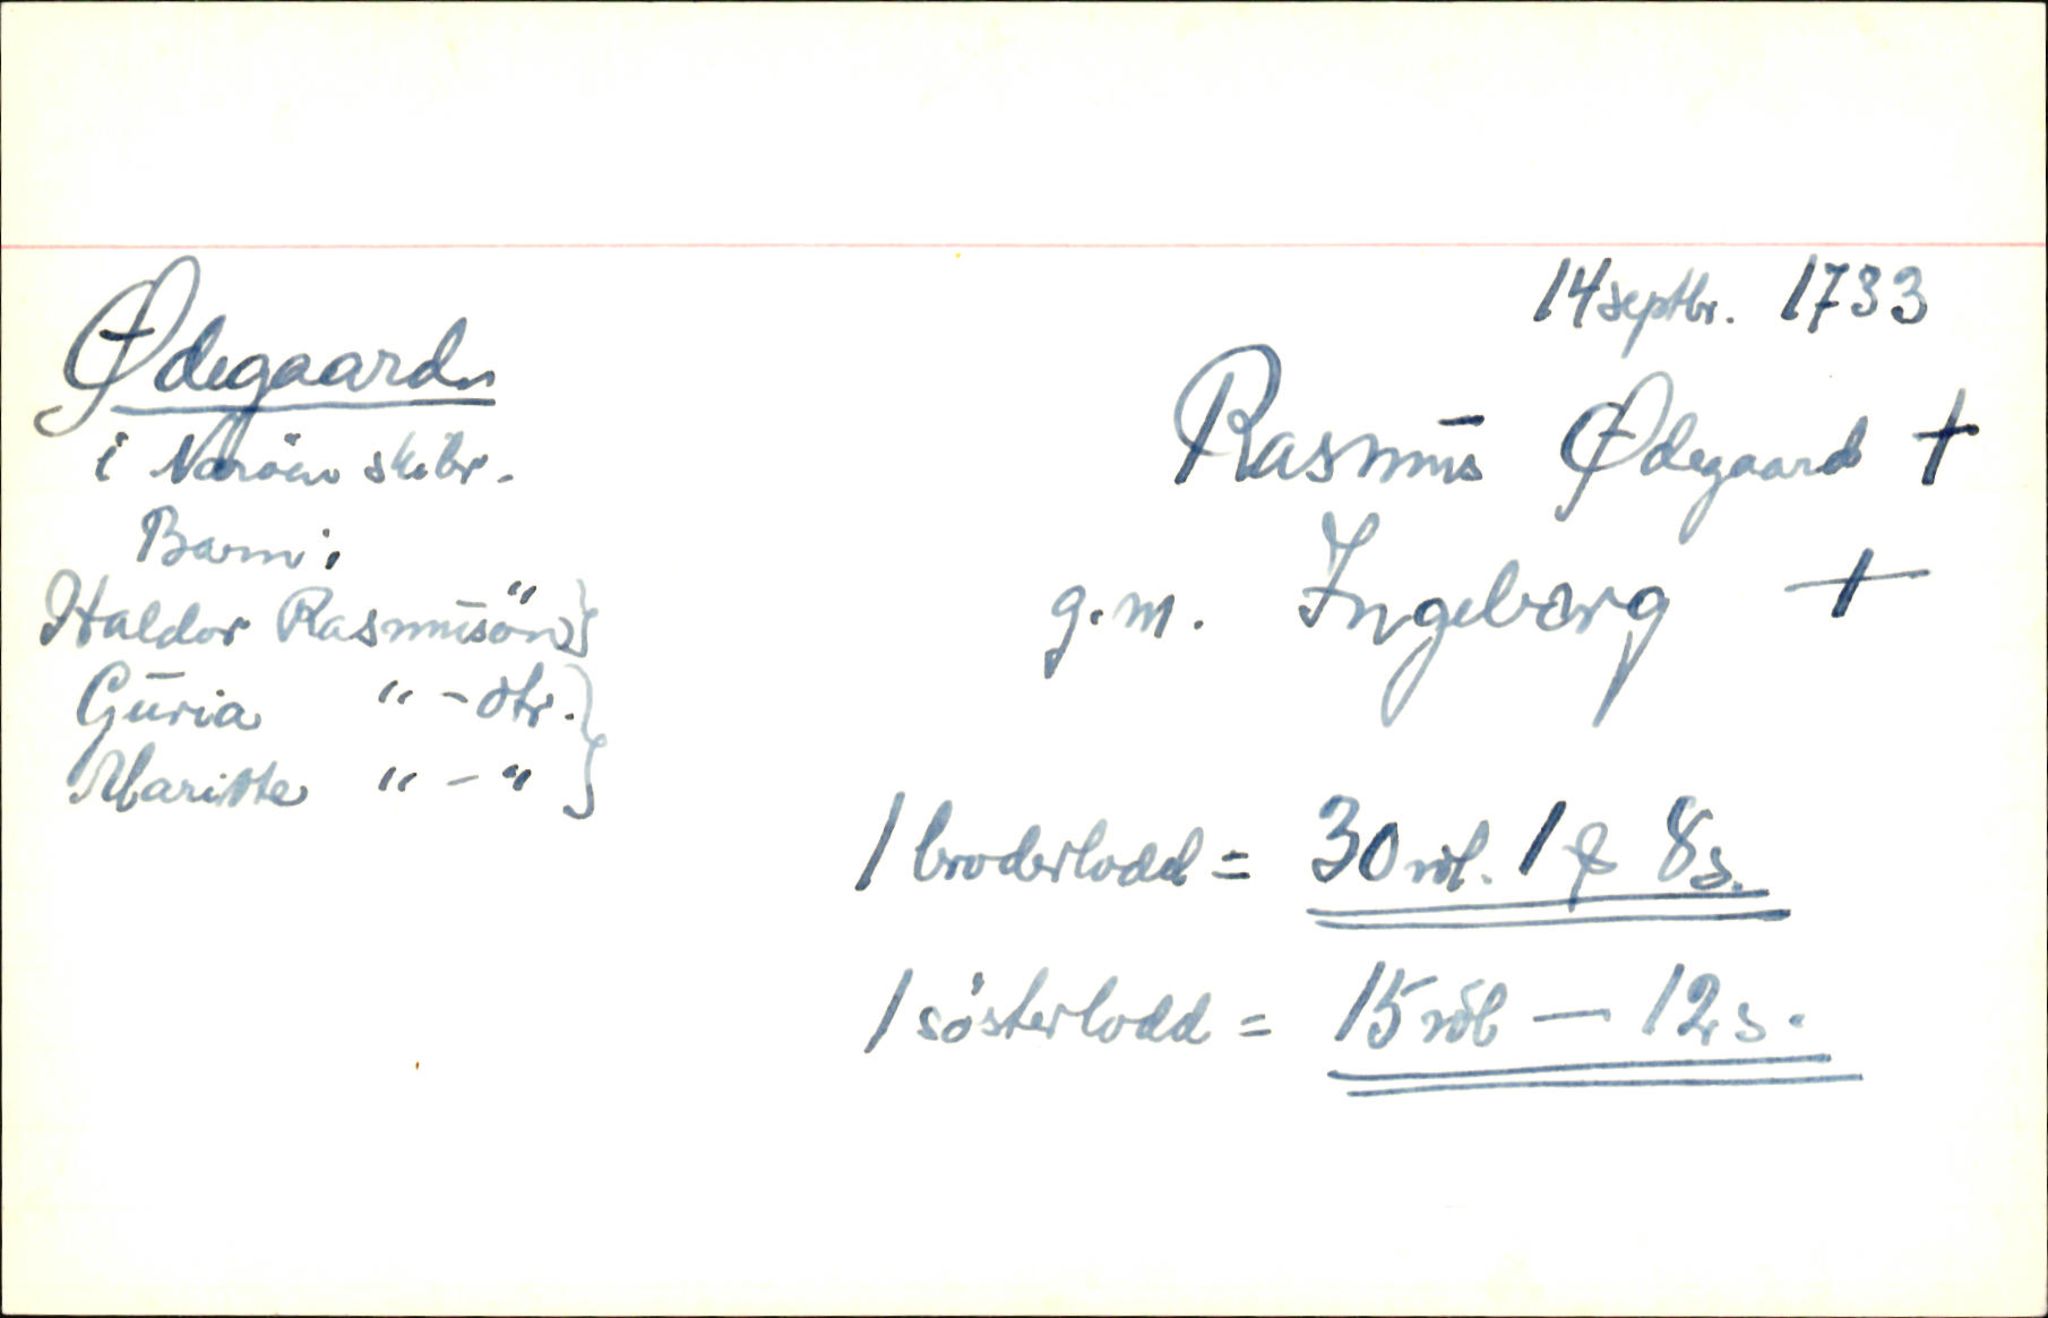 14 septbr. 1733
Ødegaard
i Naröen skibr.
Rasmus Ødegaard †
g.m. Ingeborg †
Barn:
Haldor Rasmusön }
Guria " - dtr. }
Maritte " - " }
1 broderlodd = 30 rdl. 1 ℔ 8 s.
1 sösterlodd = 15 rdl — 12 s.